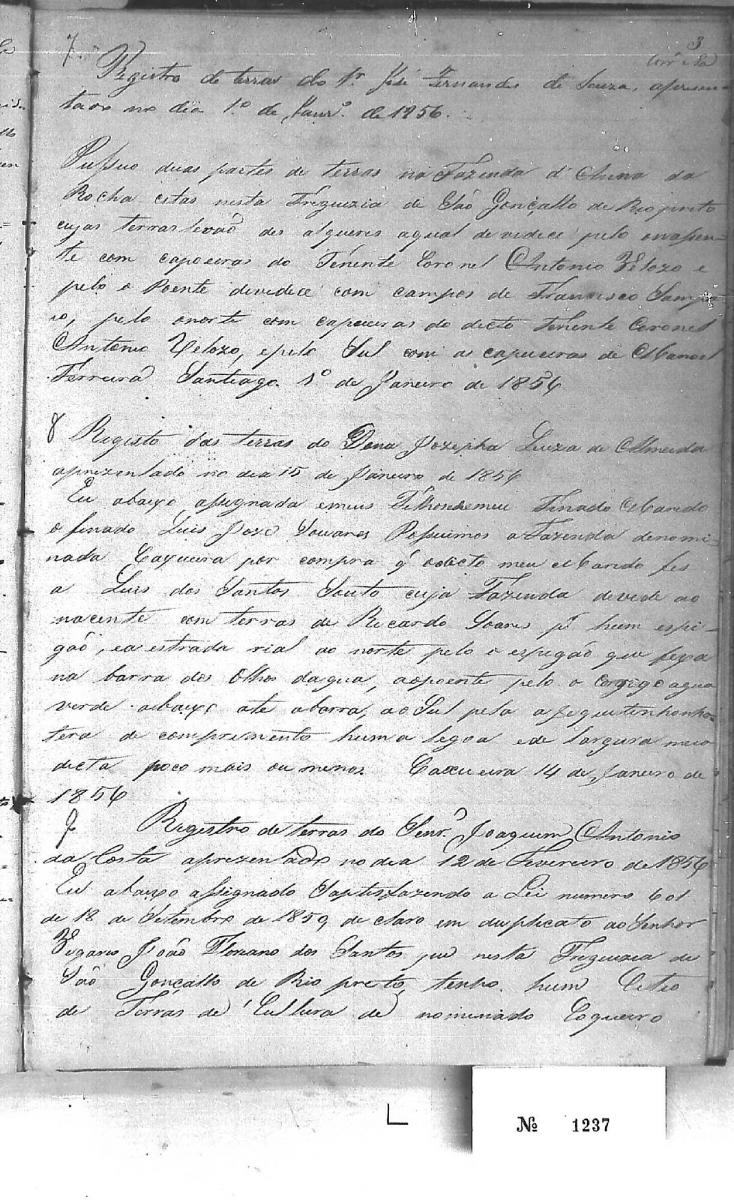 3
7.
Registro de terras do Sr. José Fernandes de Souza, aprezen-
tado no dia 1º de Janrº. de 1856.
Pussuo duas partes de terras na Fazenda d'Anna da
Rocha citas nesta Freguezia de São Gonçallo do Rio preto
cujas terras levão des alqueres aqual devidece pelo onassen-
te com capoeiras do Tenente Coronel Antonio Velozo e
pelo o Poente devidece com campos de Francisco Sampa
io, pelo onorte com capoeiras do dicto tenente Coronel
Antonio Velozo, epelo Sul com as capueiras de Manoel
Ferreira Santiago 1º de Janeiro de 1856
8 Registo das terras de Dona Jozepha Luiza de Almeida
aprezentado no dia 15 de Janeiro de 1856
Eu abaixo assignada emeus Finado Marido
o finado Luis Joze Soares Possuimos a Fazenda denomi-
nada Caxueira por compra q odicto meu Marido fes
a Luis dos Santos Souto cuja Fazenda devide ao
nacente com terras de Ricardo Soares pr hum espi-
gão, ea estrada rial ao norte pelo o espigão que fexa
na barra dos Olhos dagua, aopoente pelo o corrigo agua
verde abaixo ate abarra, ao Sul pela a Jequitinhonha
tera de compremento huma legoa ede largura meia
dicta poco mais ou menos. Caxueira 14 de Janeiro de
1856
9 Registro de terras do Senr. Joaquim Antonio
da Costa aprezentado no dia 12 de Fevereiro de 1856
Eu abaixo assignado Saptisfazendo a Lei numero 601
de 18 de Setembro de 1850, de claro em duplicato ao Senhor
Vigario João Florano dos Santos que nesta Freguezia de
São Gonçallo do Rio preto, tenho hum Citio
de Terras de Cultura de nominado Coqueiro
Nº 1237